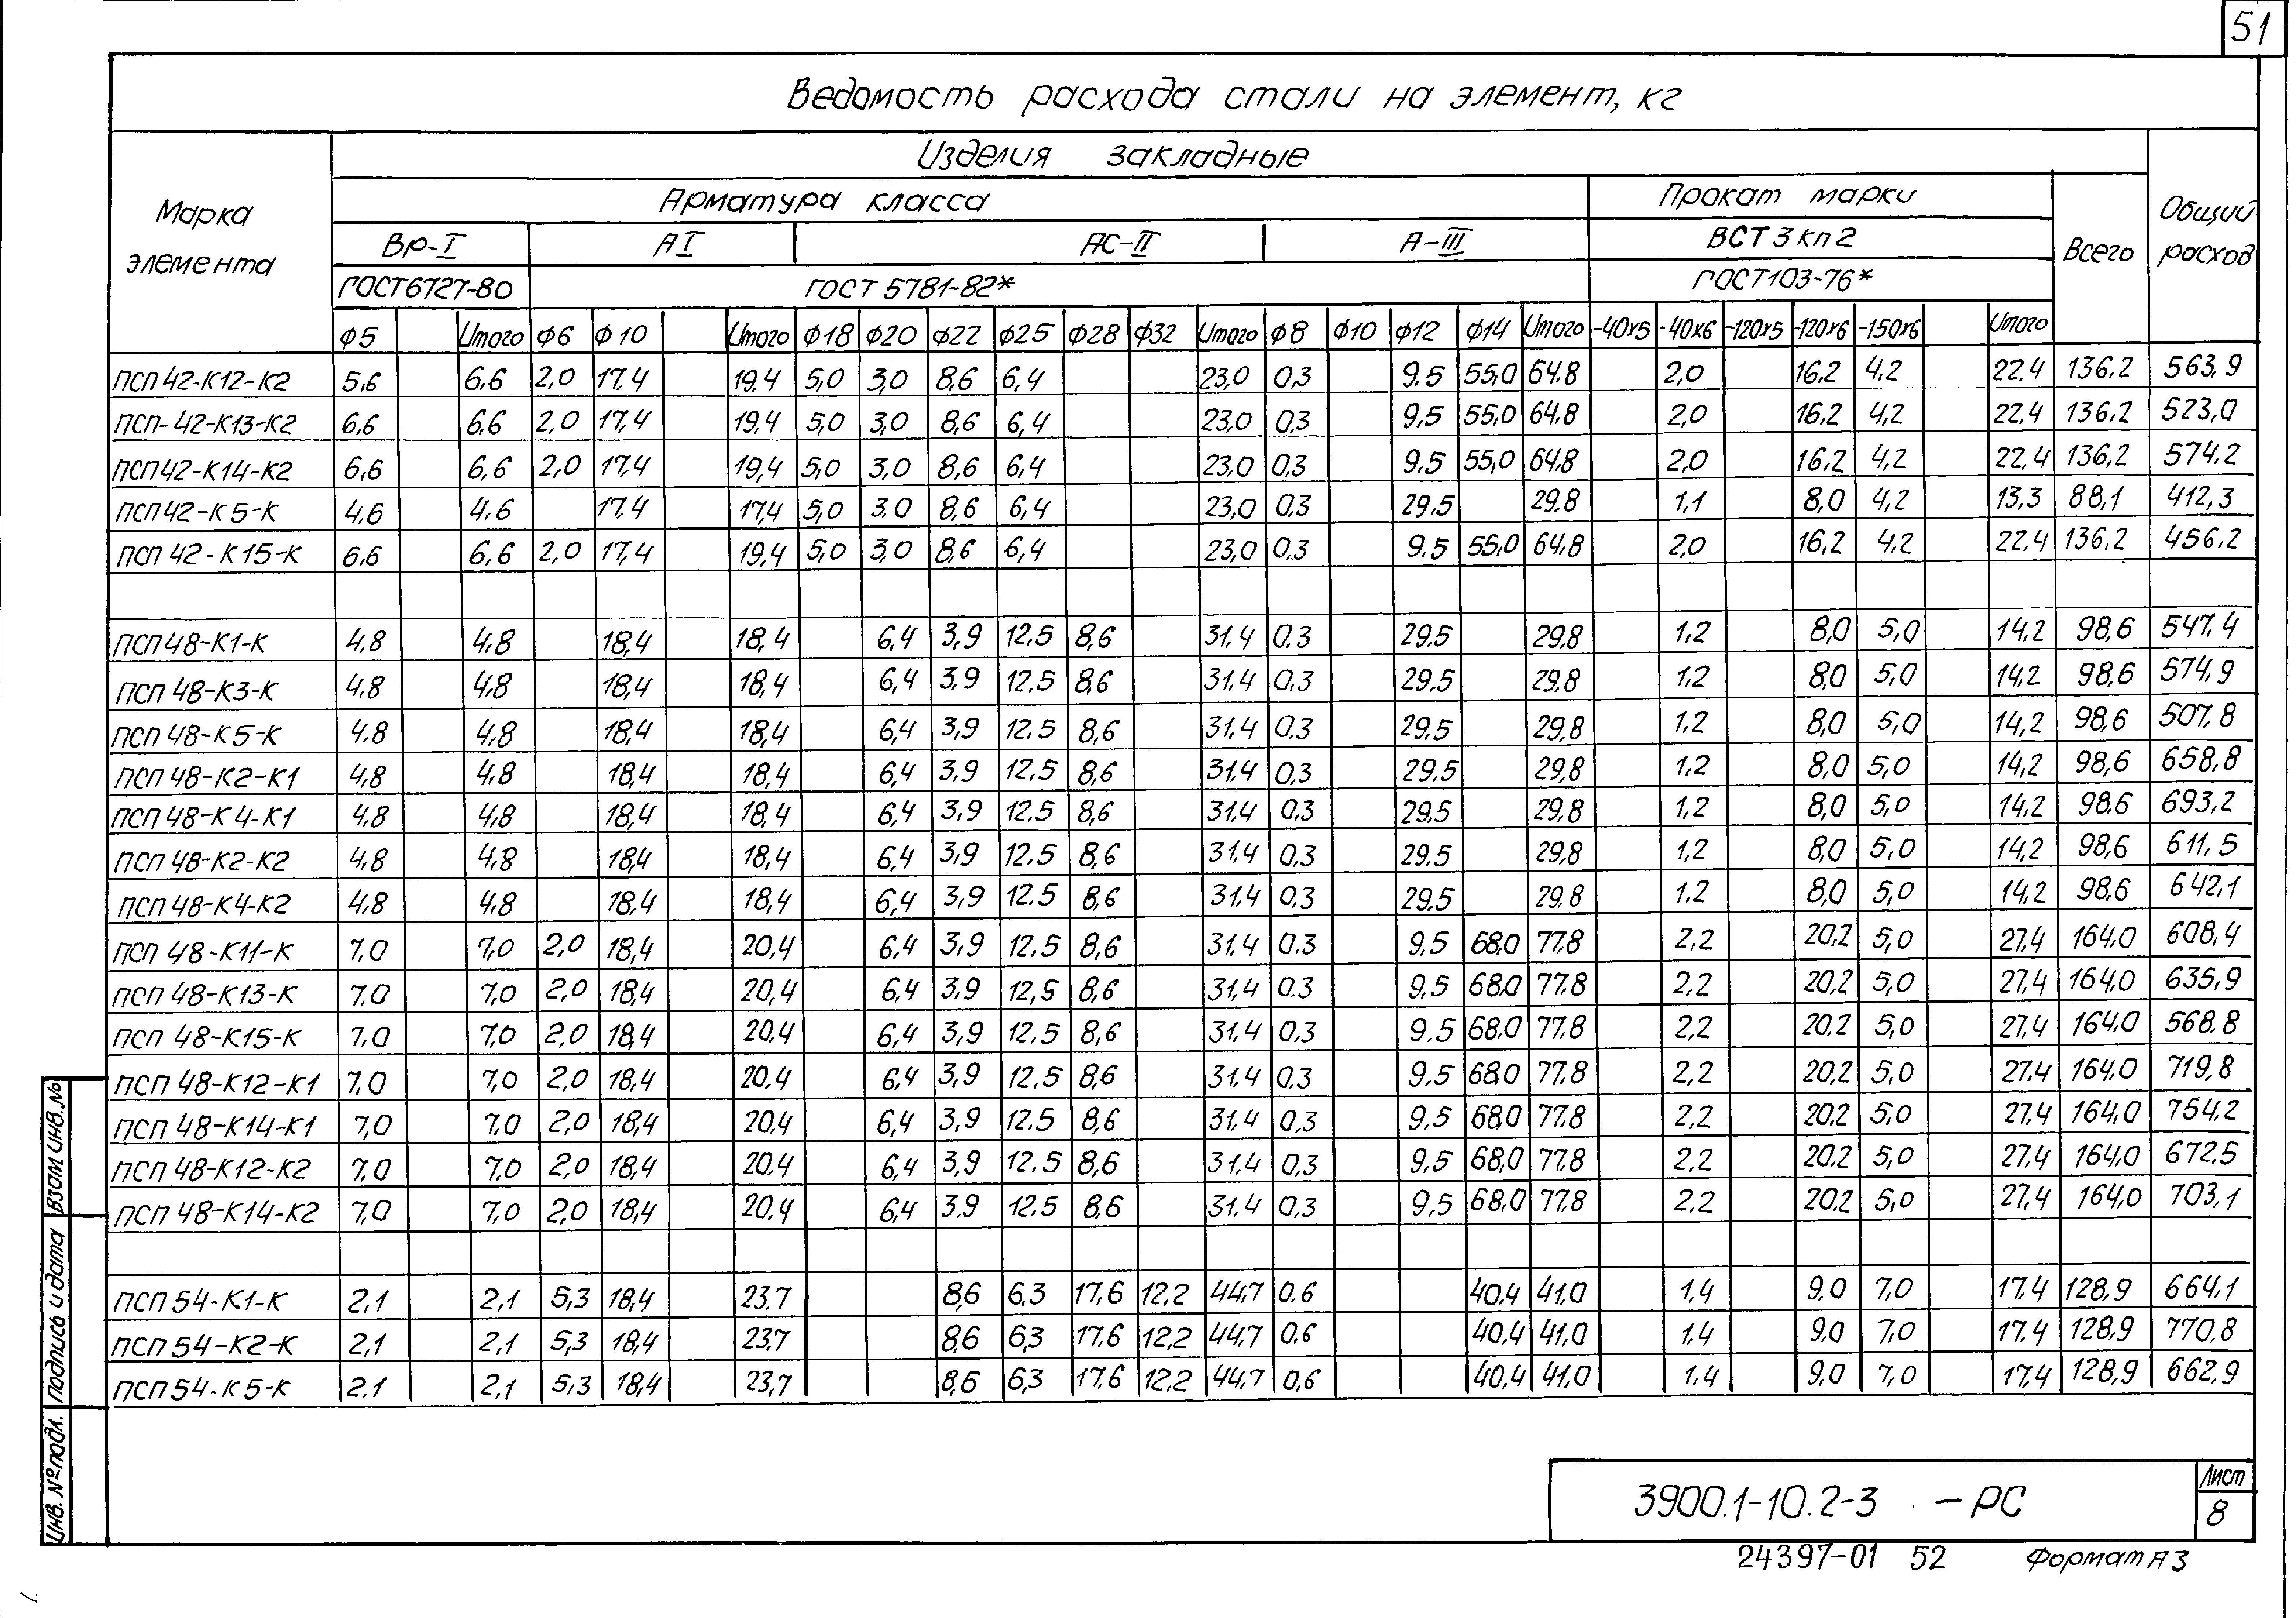 51
Ведомость расхода стали на элемент, кг
Марка элемента
Изделия закладные
Общий расход
Арматура класса
Прокат марки
Всего
Вр-I АI АС-II А-III ВСТ3кп2
ГОСТ6727-80 ГОСТ 5781-82* ГОСТ103-76*
Ф5 Итого Ф6 Ф10 Итого Ф18 Ф20 Ф22 Ф25 Ф28 Ф32 Итого Ф8 Ф10 Ф12 Ф14 Итого -40х5 -40х6 -120х5 -120х6 -150х6 Итого
ПСП 42-К12-К2 5,6 6,6 2,0 17,4 19,4 5,0 3,0 8,6 6,4 23,0 0,3 9,5 55,0 64,8 2,0 16,2 4,2 22,4 136,2 563,9
ПСП-42-К13-К2 6,6 6,6 2,0 17,4 19,4 5,0 3,0 8,6 6,4 23,0 0,3 9,5 55,0 64,8 2,0 16,2 4,2 22,4 136,2 523,0
ПСП42-К14-К2 6,6 6,6 2,0 17,4 19,4 5,0 3,0 8,6 6,4 23,0 0,3 9,5 55,0 64,8 2,0 16,2 4,2 22,4 136,2 574,2
ПСП42-К5-К 4,6 4,6 17,4 17,4 5,0 3,0 8,6 6,4 23,0 0,3 29,5 29,8 1,1 8,0 4,2 13,3 88,1 412,3
ПСП 42-К15-К 6,6 6,6 2,0 17,4 19,4 5,0 3,0 8,6 6,4 23,0 0,3 9,5 55,0 64,8 2,0 16,2 4,2 22,4 136,2 456,2
ПСП48-К1-К 4,8 4,8 18,4 18,4 6,4 3,9 12,5 8,6 31,4 0,3 29,5 29,8 1,2 8,0 5,0 14,2 98,6 547,4
ПСП 48-К3-К 4,8 4,8 18,4 18,4 6,4 3,9 12,5 8,6 31,4 0,3 29,5 29,8 1,2 8,0 5,0 14,2 98,6 574,9
ПСП 48-К5-К 4,8 4,8 18,4 18,4 6,4 3,9 12,5 8,6 31,4 0,3 29,5 29,8 1,2 8,0 5,0 14,2 98,6 507,8
ПСП 48-К2-К1 4,8 4,8 18,4 18,4 6,4 3,9 12,5 8,6 31,4 0,3 29,5 29,8 1,2 8,0 5,0 14,2 98,6 658,8
ПСП 48-К4-К1 4,8 4,8 18,4 18,4 6,4 3,9 12,5 8,6 31,4 0,3 29,5 29,8 1,2 8,0 5,0 14,2 98,6 693,2
ПСП 48-К2-К2 4,8 4,8 18,4 18,4 6,4 3,9 12,5 8,6 31,4 0,3 29,5 29,8 1,2 8,0 5,0 14,2 98,6 611,5
ПСП 48-К4-К2 4,8 4,8 18,4 18,4 6,4 3,9 12,5 8,6 31,4 0,3 29,5 29,8 1,2 8,0 5,0 14,2 98,6 642,1
ПСП 48-К11-К 7,0 7,0 2,0 18,4 20,4 6,4 3,9 12,5 8,6 31,4 0,3 9,5 68,0 77,8 2,2 20,2 5,0 27,4 164,0 608,4
ПСП 48-К13-К 7,0 7,0 2,0 18,4 20,4 6,4 3,9 12,5 8,6 31,4 0,3 9,5 68,0 77,8 2,2 20,2 5,0 27,4 164,0 635,9
ПСП 48-К15-К 7,0 7,0 2,0 18,4 20,4 6,4 3,9 12,5 8,6 31,4 0,3 9,5 68,0 77,8 2,2 20,2 5,0 27,4 164,0 568,8
ПСП 48-К12-К1 7,0 7,0 2,0 18,4 20,4 6,4 3,9 12,5 8,6 31,4 0,3 9,5 68,0 77,8 2,2 20,2 5,0 27,4 164,0 719,8
ПСП 48-К14-К1 7,0 7,0 2,0 18,4 20,4 6,4 3,9 12,5 8,6 31,4 0,3 9,5 68,0 77,8 2,2 20,2 5,0 27,4 164,0 754,2
ПСП 48-К12-К2 7,0 7,0 2,0 18,4 20,4 6,4 3,9 12,5 8,6 31,4 0,3 9,5 68,0 77,8 2,2 20,2 5,0 27,4 164,0 672,5
ПСП 48-К14-К2 7,0 7,0 2,0 18,4 20,4 6,4 3,9 12,5 8,6 31,4 0,3 9,5 68,0 77,8 2,2 20,2 5,0 27,4 164,0 703,1
ПСП 54-К1-К 2,1 2,1 5,3 18,4 23,7 8,6 6,3 17,6 12,2 44,7 0,6 40,4 41,0 1,4 9,0 7,0 17,4 128,9 664,1
ПСП 54-К2-К 2,1 2,1 5,3 18,4 23,7 8,6 6,3 17,6 12,2 44,7 0,6 40,4 41,0 1,4 9,0 7,0 17,4 128,9 770,8
ПСП 54-К5-К 2,1 2,1 5,3 18,4 23,7 8,6 6,3 17,6 12,2 44,7 0,6 40,4 41,0 1,4 9,0 7,0 17,4 128,9 662,9
Взам инв.№
Подпись и дата
Инв. № подл.
3900.1-10.2-3 -РС
Лист
8
24397-01 52 Формат А3